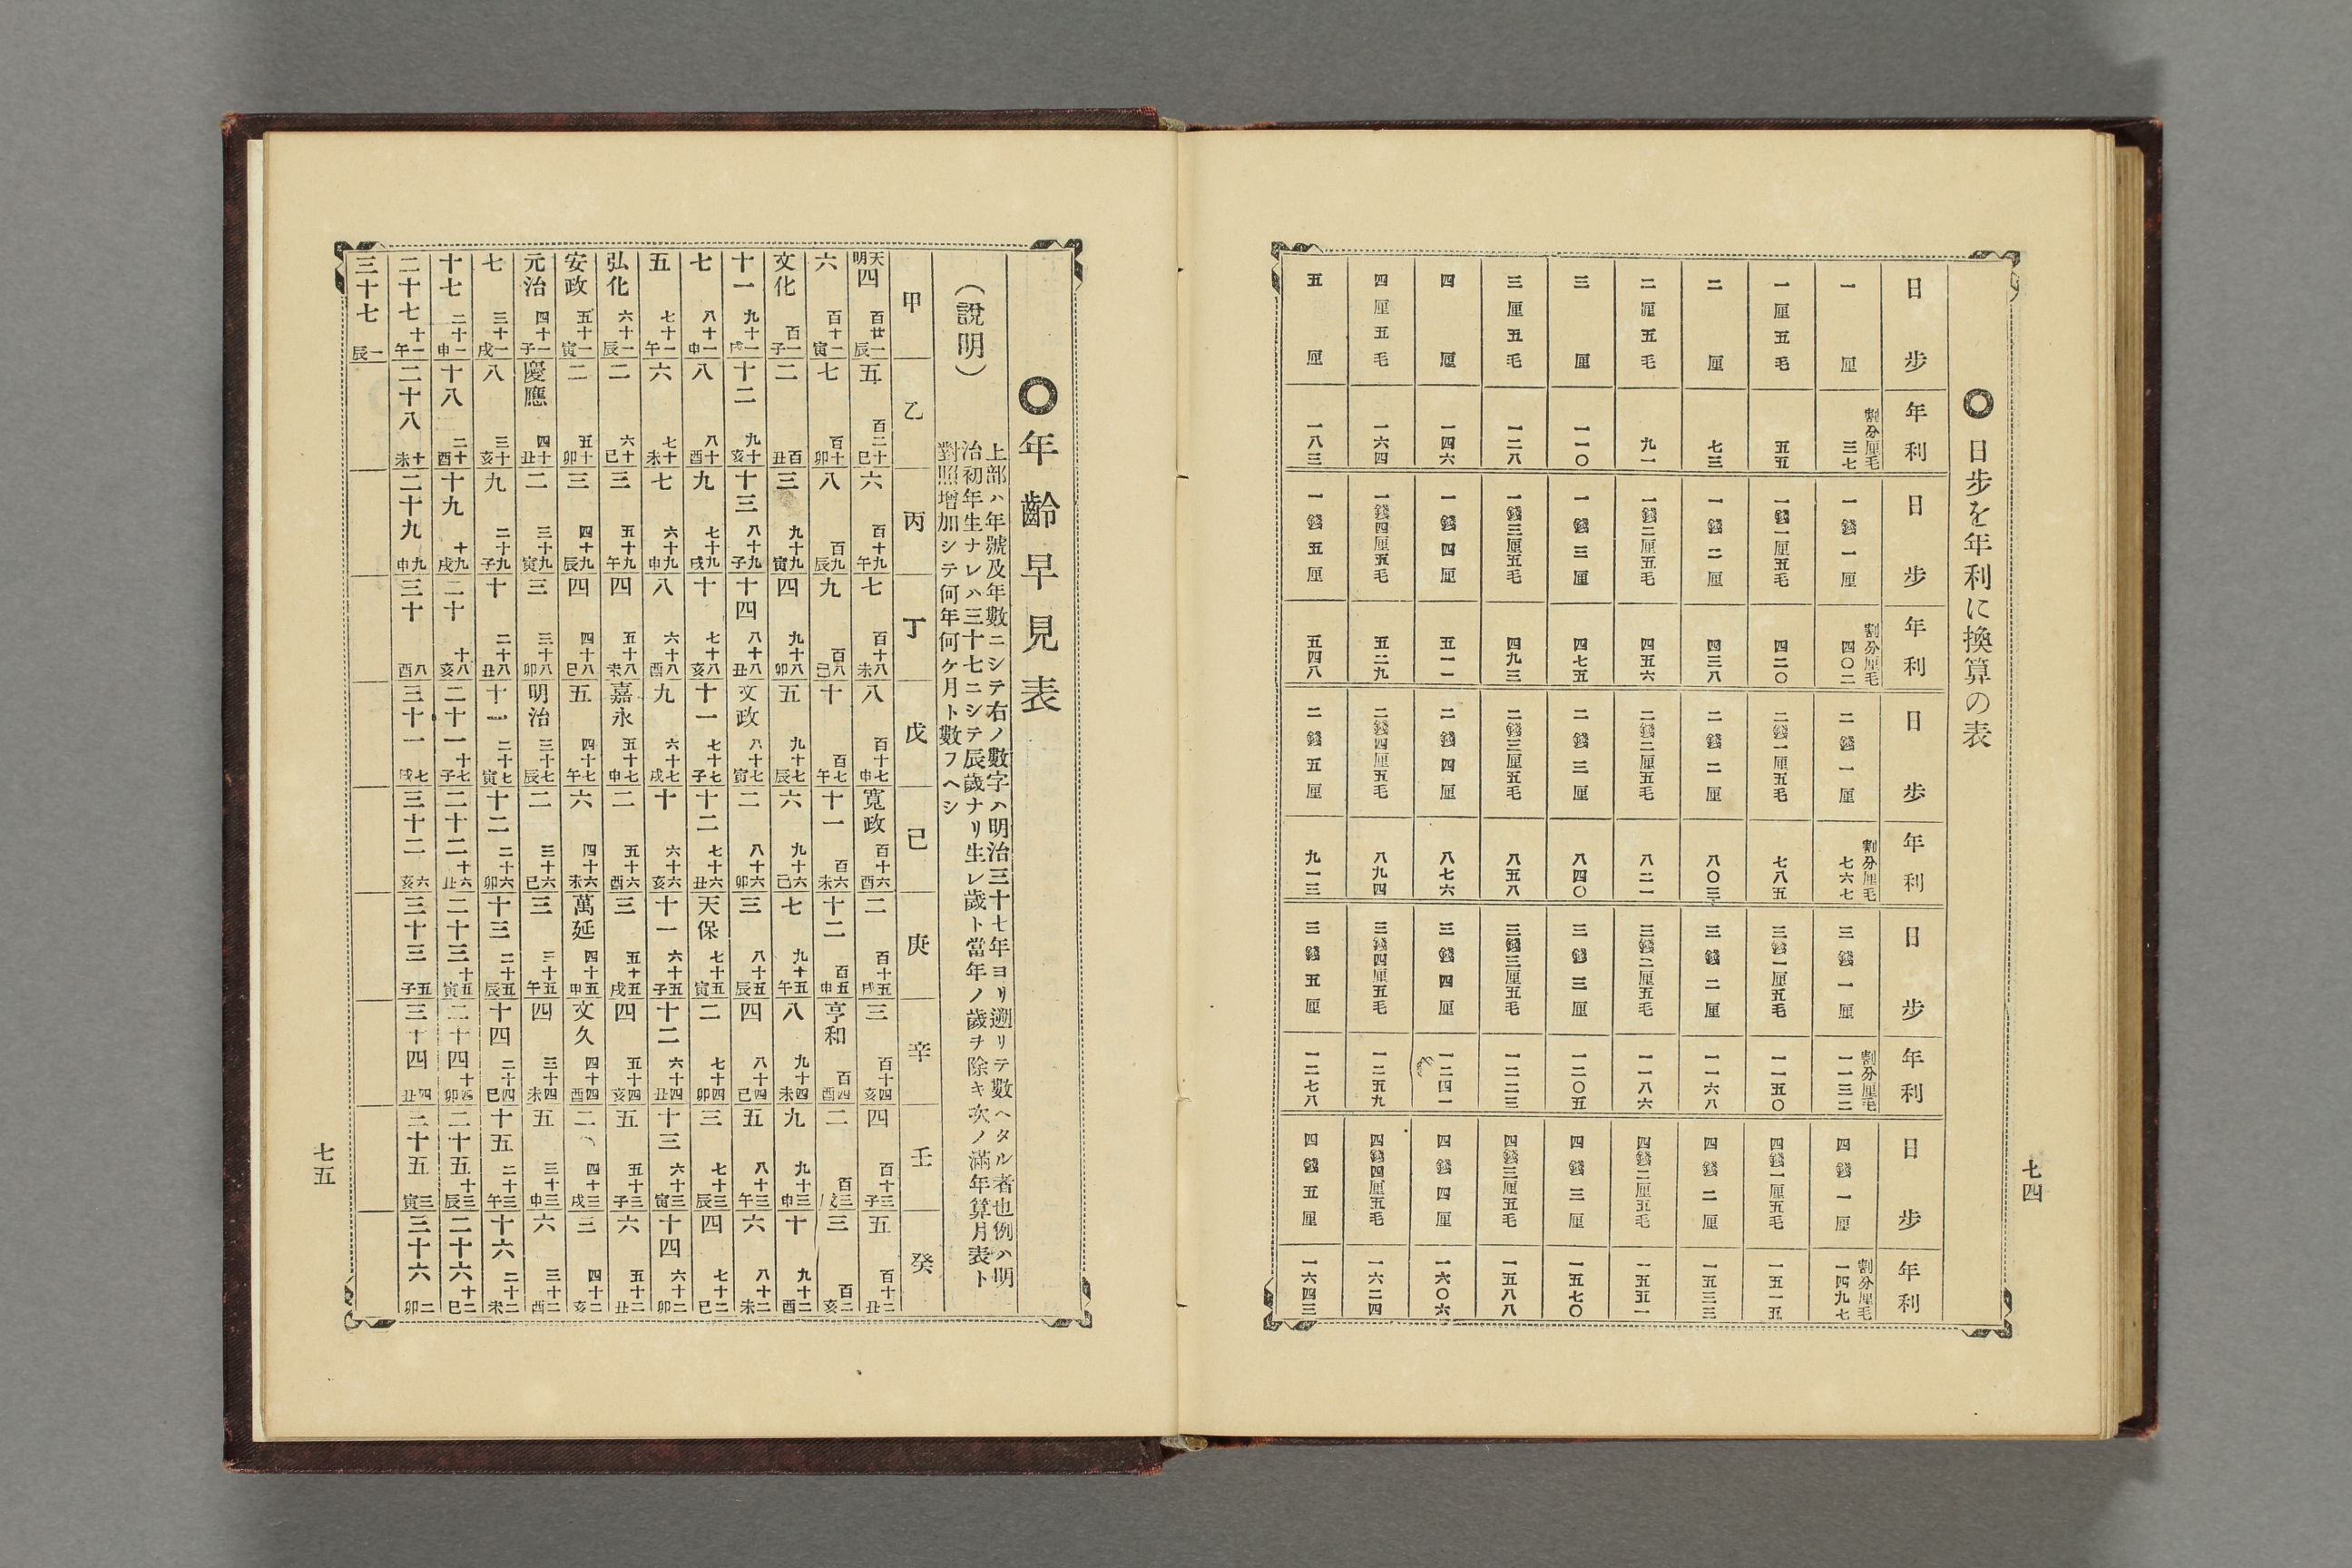 七四
◎日步を年利に換算の表
日步 年利 日步 年利 日步 年利 日步 年利 日步 年利
一厘 割分厘毛 三七 一錢一厘 割分厘毛 四〇二 二錢一厘 割分厘毛 七六七 三錢一厘 割分厘毛 一一三二 四錢一厘 割分厘毛 一四九七
一厘五毛 五五 一錢一厘五毛 四二〇 二錢一厘五毛 七八五 三錢一厘五毛 一一五〇 四錢一厘五毛 一五一五
二厘 七三 一錢二厘 四三八 二錢二厘 八〇三 三錢二厘 一一六八 四錢二厘 一五三三
二厘五毛 九一 一錢二厘五毛 四五六 二錢二厘五毛 八二一 三錢二厘五毛 一一八六 四錢二厘五毛 一五五一
三厘 一一〇 一錢三厘 四七五 二錢三厘 八四〇 三錢三厘 一二〇五 四錢三厘 一五七〇
三厘五毛 一二八 一錢三厘五毛 四九三 二錢三厘五毛 八五八 三錢三厘五毛 一二二三 四錢三厘五毛 一五八八
四厘 一四六 一錢四厘 五一一 二錢四厘 八七六 三錢四厘 一二四一 四錢四厘 一六〇六
四厘五毛 一六四 一錢四厘五毛 五二九 二錢四厘五毛 八九四 三錢四厘五毛 一二五九 四錢四厘五毛 一六二四
五厘 一八三 一錢五厘 五四八 二錢五厘 九一三 三錢五厘 一二七八 四錢五厘 一六四三
◎年齡早見表
(說明)
上部ハ年號及年數ニシテ右ノ數字ハ明治三十七年ヨリ遡リテ數ヘタル者也例ハ明
治初年生ナレハ三十七ニシテ辰歲ナリ生レ歲ト當年ノ歲ヲ除キ次ノ滿年算月表ト
對照增加シテ何年何ケ月ト數フヘシ
甲 乙 丙 丁 戊 己 庚 辛 壬 癸
天明四 百廿一辰 五 百二十巳 六 百十九午 七 百十八未 八 百十七申 寬政 百十六酉 二 百十五戌 三 百十四亥 四 百十三子 五 百十二丑
六 百十一寅 七 百十卯 八 百九辰 九 百八巳 十 百七午 十一 百六未 十二 百五申 亨和 百四酉 二 百三戌 三 百二亥
文化 百一子 二 百丑 三 九十九寅 四 九十八卯 五 九十七辰 六 九十六巳 七 九十五午 八 九十四未 九 九十三申 十 九十二酉
十一 九十一戌 十二 九十亥 十三 八十九子 十四 八十八丑 文政 八十七寅 二 八十六卯 三 八十五辰 四 八十四巳 五 八十三午 六 八十二未
七 八十一申 八 八十酉 九 七十九戌 十 七十八亥 十一 七十七子 十二 七十六丑 天保 七十五寅 二 七十四卯 三 七十三辰 四 七十二巳
五 七十一午 六 七十未 七 六十九申 八 六十八酉 九 六十七戌 十 六十六亥 十一 六十五子 十二 六十四丑 十三 六十三寅 十四 六十二卯
弘化 六十一辰 二 六十巳 三 五十九午 四 五十八未 嘉永 五十七申 二 五十六酉 三 五十五戌 四 五十四亥 五 五十三子 六 五十二丑
安政 五十一寅 二 五十卯 三 四十九辰 四 四十八巳 五 四十七午 六 四十六未 萬延 四十五申 文久 四十四酉 二 四十三戌 三 四十二亥
元治 四十一子 慶應 四十丑 二 三十九寅 三 三十八卯 明治 三十七辰 二 三十六巳 三 三十五午 四 三十四未 五 三十三申 六 三十二酉
七 三十一戌 八 三十亥 九 二十九子 十 二十八丑 十一 二十七寅 十二 二十六卯 十三 二十五辰 十四 二十四巳 十五 二十三午 十六 二十二未
十七 二十一申 十八 二十酉 十九 十九戌 二十 十八亥 二十一 十七子 二十二 十六丑 二十三 十五寅 二十四 十四卯 二十五 十三辰 二十六 十二巳
二十七 十一午 二十八 十未 二十九 九申 三十 八酉 三十一 七戌 三十二 六亥 三十三 五子 三十四 四丑 三十五 三寅 三十六 二卯
三十七 一辰
七五